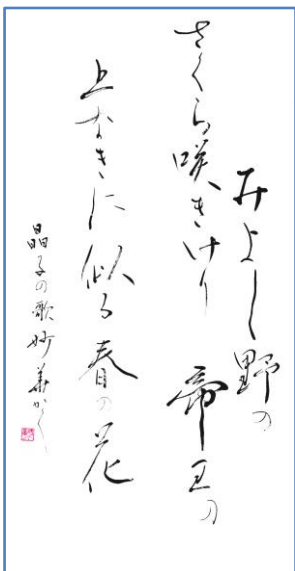 みよし野の
さくら咲きけり 帝王の
上なきに似る春の花
晶子の歌 妙華かく